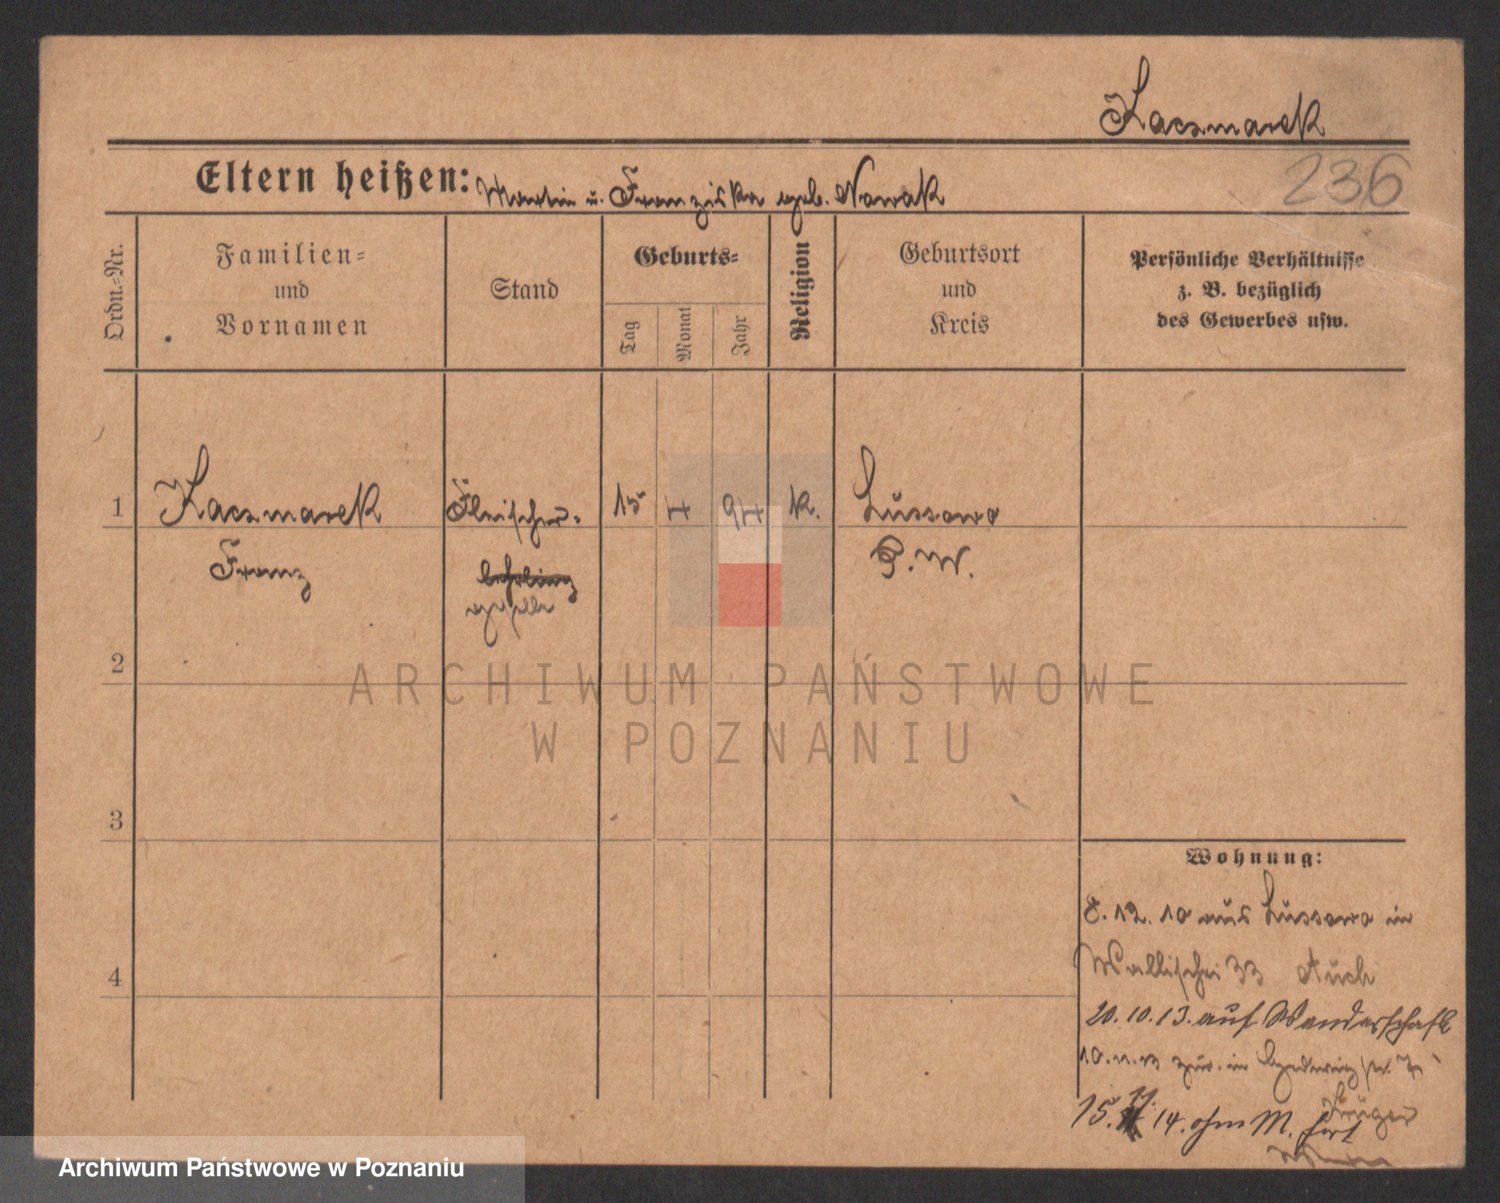 Kaczmarek
236
Eltern heißen: Martin u. Franziska geb. Nowak
Ordn.-Nr.
Familien-
und
Vornamen
Stand
Geburts-
Tag
Monat
Jahr
Religion
Geburtsort
und
Kreis
Persönliche Verhältnisse
z. B. bezüglich
des Gewerbes usw.
1
Kaczmarek
Franz
Fleischer-
lehrling
geselle
15
k.
Lussowo
P.W.
2
3
4
Wohnung:
8.12.10 aus Lussowo in
Wallischei 33
20.10.13. auf Wanderschaft
10.11.13 zur. in
Krüger
15. 14. ohne M. fort
ARCHIWUM PAŃSTWOWE
W POZNANIU
Archiwum Państwowe w Poznaniu